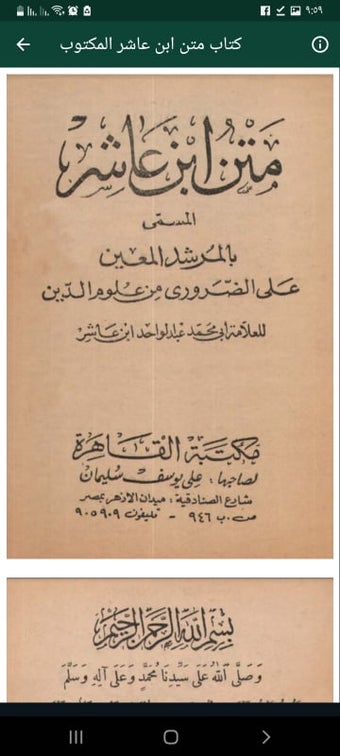 ٩:٥٩
كتاب متن ابن عاشر المكتوب
متن ابن عاشر
المسمى
بالمرشد المعين
على الضرورى من علوم الدين
للعلامة أبى محمد عبد الواحد ابن عاشر
مكتبة القاهرة
لصاحبها : على يوسف سليمان
شارع الصنادقية : ميدان الأزهر بمصر
ص . ب ٩٤٦ - تليفون ٩٠٥٩٠٩
بِسْمِ اللهِ الرَّحْمٰنِ الرَّحِيْمِ
وَصَلَّى اللهُ عَلَى سَيِّدِنَا مُحَمَّدٍ وَعَلَى آلِهِ وَسَلَّمَ